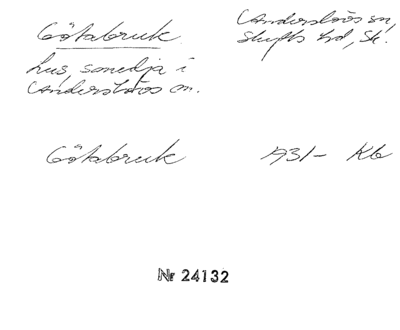 Götabruk
Anderslövs sn,
Skytts hd, Sk.
hus, smedja i
Anderslövs sn.
Götabruk 1931- Kb
Nr 24132